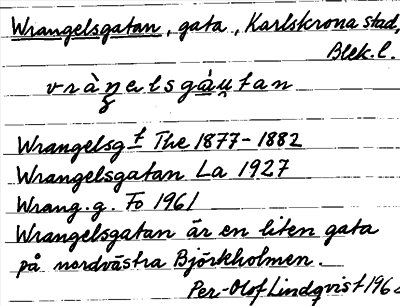 Wrangelsgatan, gata, Karlskrona stad,
Blek.l.
Wrangelsgt The 1877-1882
Wrangelsgatan La 1927
Wrang.g. To 1961
Wrangelsgatan är en liten gata
på nordvästra Björkholmen.
Per-Olof Lindqvist